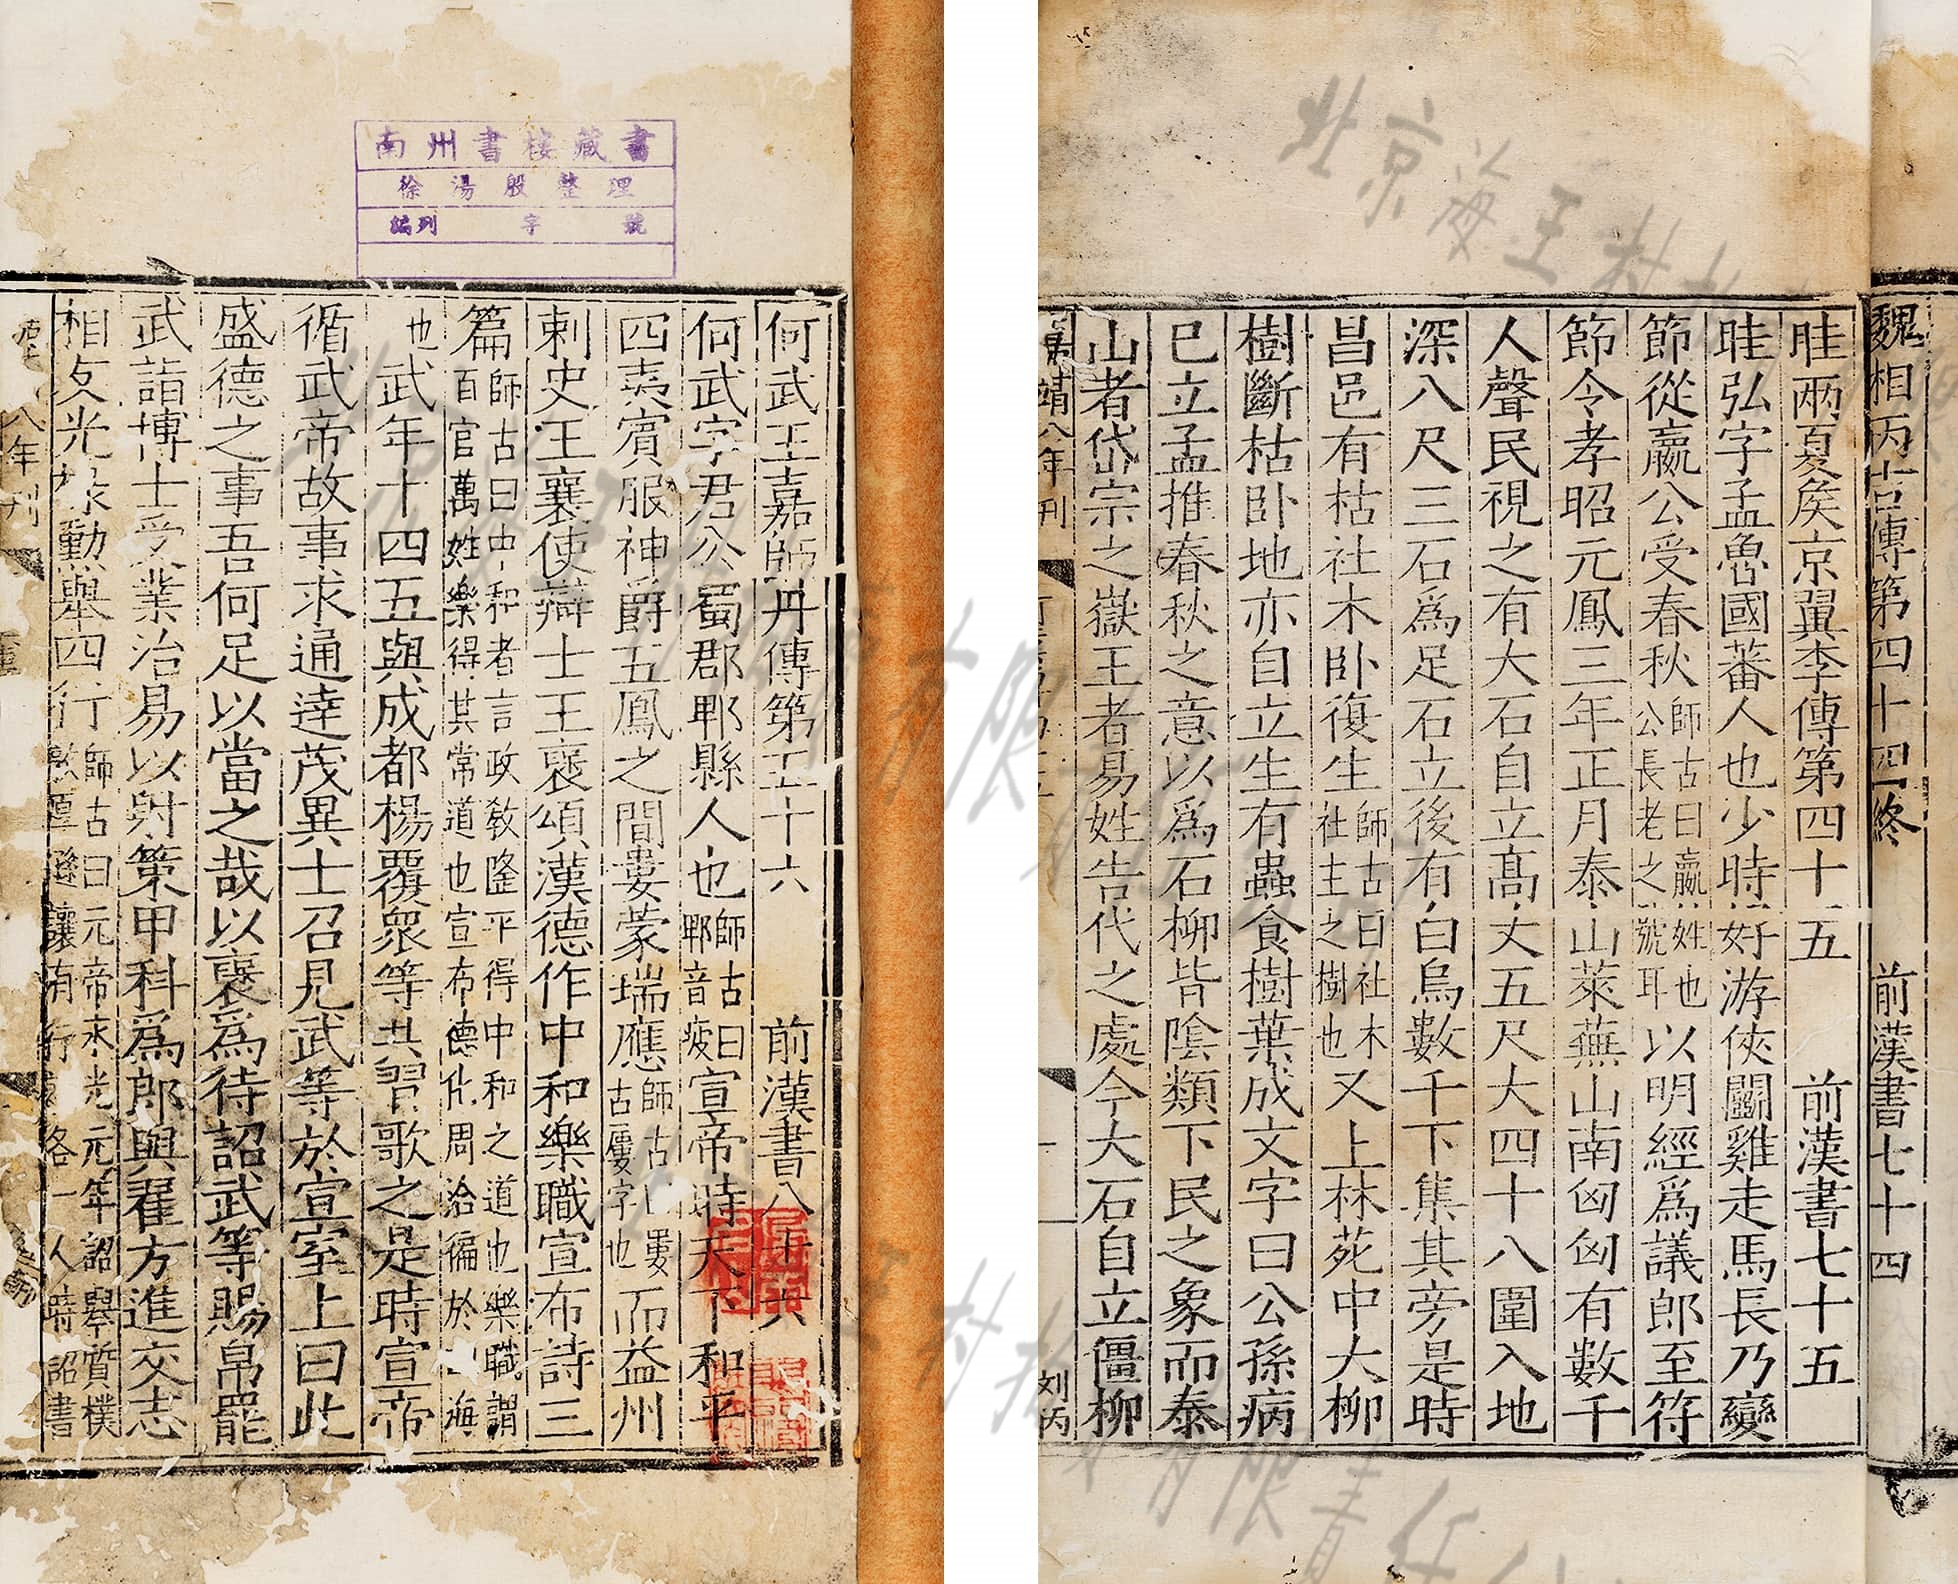 南州書樓藏書
徐湯殷整理
編列 字 號
何武王嘉師丹傳第五十六 前漢書八十六
何武字君公蜀郡郫縣人也師古曰郫音疲宣帝時天下和平
四夷賓服神爵五鳳之間婁蒙瑞應師古曰婁古屢字也而益州
刺史王襄使辯士王襃頌漢德作中和樂職宣布詩三
篇師古曰中和者言政教隆平得中和之道也樂職謂百官萬姓樂得其常道也宣布德化周洽徧於四海
也武年十四五與成都楊覆衆等共習歌之是時宣帝
循武帝故事求通達茂異士召見武等於宣室上曰此
盛德之事吾何足以當之哉以襃爲待詔武等賜帛罷
武詣博士受業治易以射策甲科爲郎與翟方進交志
相友光祿勳舉四行師古曰元帝永光元年詔舉質樸敦厚遜讓有行義各一人時詔書
八年刊
魏相丙吉傳第四十四終 前漢書七十四
眭兩夏矦京翼李傳第四十五 前漢書七十五
眭弘字孟魯國蕃人也少時好游俠鬬雞走馬長乃變
節從嬴公受春秋師古曰嬴姓也公長老之號耳以明經爲議郎至符
節令孝昭元鳳三年正月泰山萊蕪山南匈匈有數千
人聲民視之有大石自立高丈五尺大四十八圍入地
深八尺三石爲足石立後有白烏數千下集其旁是時
昌邑有枯社木卧復生師古曰社木社主之樹也又上林苑中大柳
樹斷枯卧地亦自立生有蟲食樹葉成文字曰公孫病
已立孟推春秋之意以爲石柳皆陰類下民之象而泰
山者岱宗之嶽王者易姓告代之處今大石自立僵柳
靖八年刊
刘丙